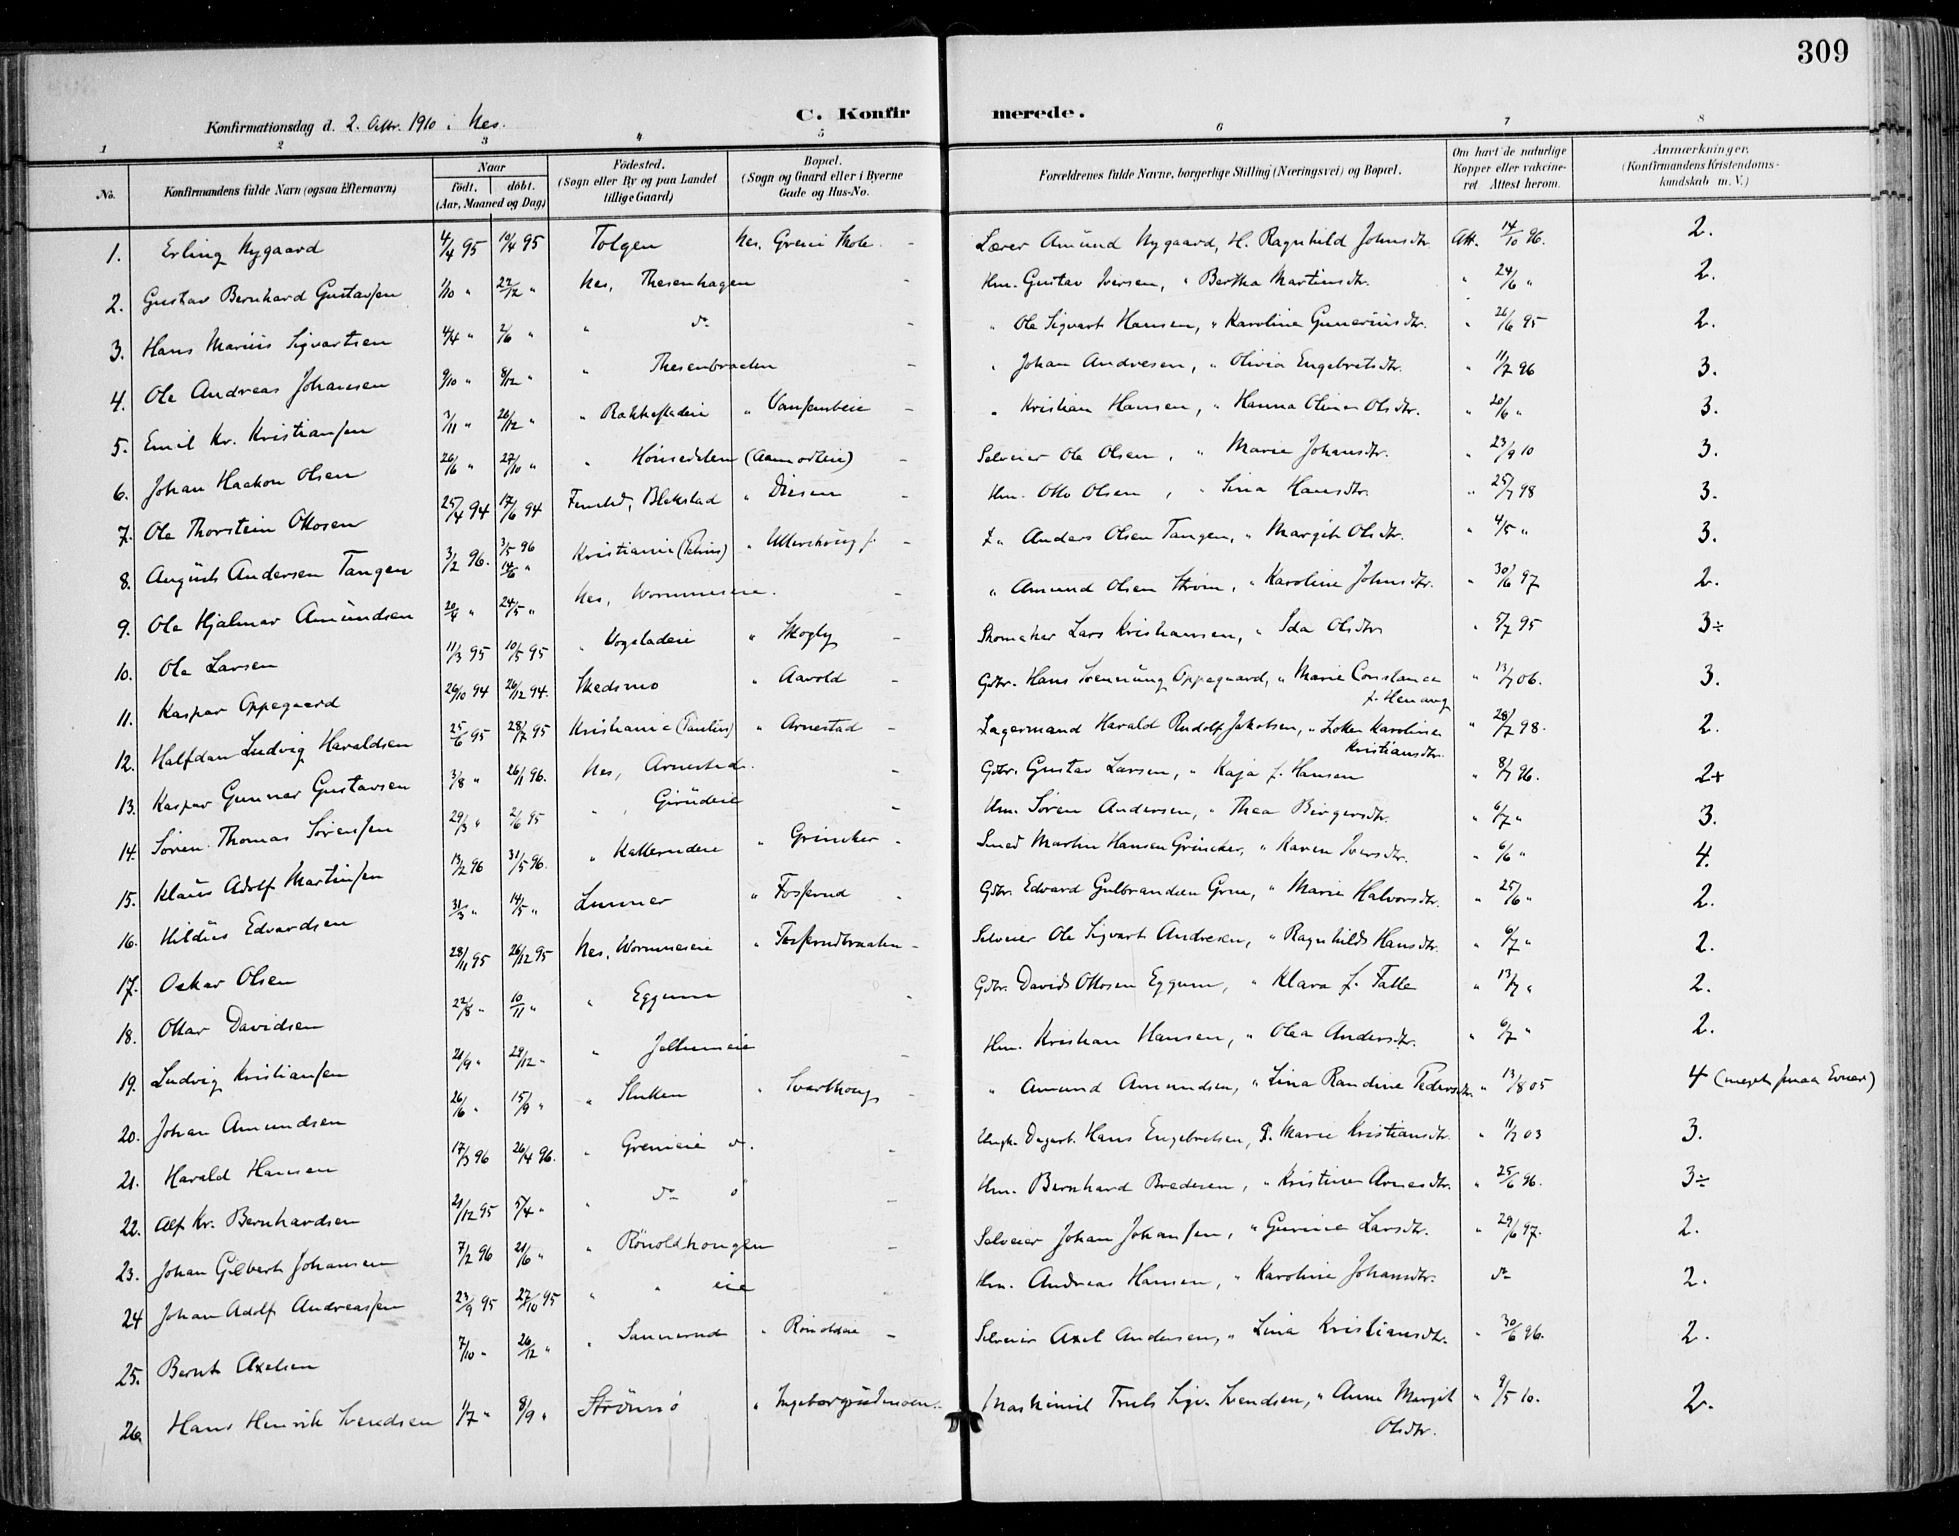 309
Konfirmationsdag d. 2. Oktbr. 1910 i Nes.
C. Konfirmerede.
1 2 3 4 5 6 7 8
No. Konfirmandens fulde Navn (ogsaa Efternavn) Naar født, døbt. (Aar, Maaned og Dag) Fødested. (Sogn eller By og paa Landet tillige Gaard) Bopæl. (Sogn og Gaard eller i Byerne Gade og Hus-No. Forældrenes fulde Navne, borgerlige Stilling (Næringsvei) og Bopæl. Om havt de naturlige Kopper eller vakcineret. Attest herom. Anmærkninger. (Konfirmandens Kristendomskundskab m. V.)
1. Erling Nygaard 4/4 95 10/4 95 Tolgen Nes. Greni Skole. - Lærer Amund Nygaard, H. Ragnhild Johnsdtr. Att. 14/10 96. 2.
2. Gustav Bernhard Gustavsen 1/10 " 22/12 " Nes, Thesenhagen - Hm. Gustav Iversen, " Bertha Martinsdtr. " 24/6 " 2.
3. Hans Marius Sigvartsen 4/4 " 2/6 " " do - " Ole Sigvart Hansen, " Karoline Guneriusdtr. " 26/6 95 2.
4. Ole Andreas Johansen 9/10 " 8/12 " " Thesenbraaten - " Johan Andresen, " Olivia Engebretsdtr. " 11/7 96 3.
5. Emil Kr. Kristiansen 3/11 " 26/12 " " Rakkestadeie " - " Kristian Hansen, " Hanna Oline Olsdtr. " 20/6 " 3.
6. Johan Haakon Olsen 26/6 " 27/10 " " (Aamodteie) - Selveier Ole Olsen, " Marie Johansdtr. " 23/9 10 3.
7. Ole Thorstein Ottosen 25/4 94 17/6 94 Fenstad, Blekstad " Disen - Hm. Otto Olsen, " Lina Hansdtr. " 25/7 98 3.
8. August Andersen Tangen 3/2 96. 3/5 96 Kristiania (Petrus) " - Anders Olsen Tangen, " Margit Olsdtr. " 4/5 " 3.
9. Ole Hjalmar Amundsen 20/4 " 24/5 " Nes, Wormneseie. - " Amund Olsen Strøm, " Karoline Johnsdtr. " 30/6 97 2.
10. Ole Larsen 11/3 95 10/5 95 " Vogsladeie " Skogly - Skomaker Lars Kristiansen, " Ida Olsdtr " 5/7 95 3÷
11. Kaspar Oppegaard 29/10 94 26/12 94. Skedsmo " Aarold - Gdbr. Hans Svenning Oppegaard, " Marie Constance f. Henang " 13/7 06. 3.
12. Halfdan Ludvig Haraldsen 25/6 95 28/7 95 Kristiania (Paulus) " Arnestad - Lagermand Harald Rudolf Jakobsen, " Karoline Kristiansdtr. " 28/7 98. 2.
13. Kaspar Gunnar Gustavsen 3/8 " 26/1 96. Nes, Arnestad. - Gdbr. Gustav Larsen, " Kaja f. Hansen " 8/7 96. 2+
14. Søren Thomas Sørensen 29/3 " 2/6 95 " Girudeie - Hm. Søren Andersen, " Thea Birgersdtr. " 6/7 " 3.
15. Klaus Adolf Martinsen 13/2 96 31/5 96. " Kallerudeie " Grinaker - Smed Martin Hansen Grinaker, " Karen Iversdtr. " 6/6 " 4.
16. Hildus Edvardsen 31/3 " 14/5 " Lunner " Fosserud - Gdbr. Edvard Gulbrandsen Grua, " Marie Halvorsdtr. " 25/6 " 2.
17. Oskar Olsen 28/11 95 26/12 95 Nes, Wormneseie " Fosserudbraaten - Selveier Ole Sigvart Andresen, " Ragnhild Hansdtr. " 6/7 " 2.
18. Ottar Davidsen 22/8 " 10/11 " " Eggum - Gdbr. David Ottosen Eggum, " Klara f. Falle " 13/7 " 2.
19. Ludvig Kristiansen 21/9 " 29/12 " " - Hm. Kristian Hansen, " Olea Andersdtr. " 6/7 " 2.
20. Johan Amundsen 26/6 " 15/9 " " Sluken " Svarthoug - " Amund Amundsen, " Lina Randine Pedersdtr. " 13/8 05 4 (meget smaa Evner)
21. Harald Hansen 17/3 96 26/4 96. " Greni eie - Ungk. Dagarb. Hans Engebretsen, P. Marie Kristiansdtr. " 11/7 03 3.
22. Alf Kr. Bernhardsen 21/12 95 5/4 " " do - Hm. Bernhard Bredesen, " Kristine Arnesdtr. " 25/6 96. 3÷
23. Johan Gilbert Johansen 7/2 96 21/6 " " Rønoldhougen - Selveier Johan Johansen, " Gurine Larsdtr. " 29/6 97. 2.
24 Johan Adolf Andreassen 23/9 95 27/10 95 " " eie Hm. Andreas Hansen, " Karoline Johansdtr. do 2.
25. Bernt Axelsen 7/10 " 26/12 " " Sannerud " Rønoldeie - Selveier Axel Andersen, " Lina Kristiansdtr. " 30/6 96. 2.
26. Hans Henrik Svendsen 1/7 " 8/9 " Strømsø " Ingeborgrudmoen. Maskinist Truls Sigv. Svendsen, " Anna Margit Olsdtr. " 9/5 10. 2.